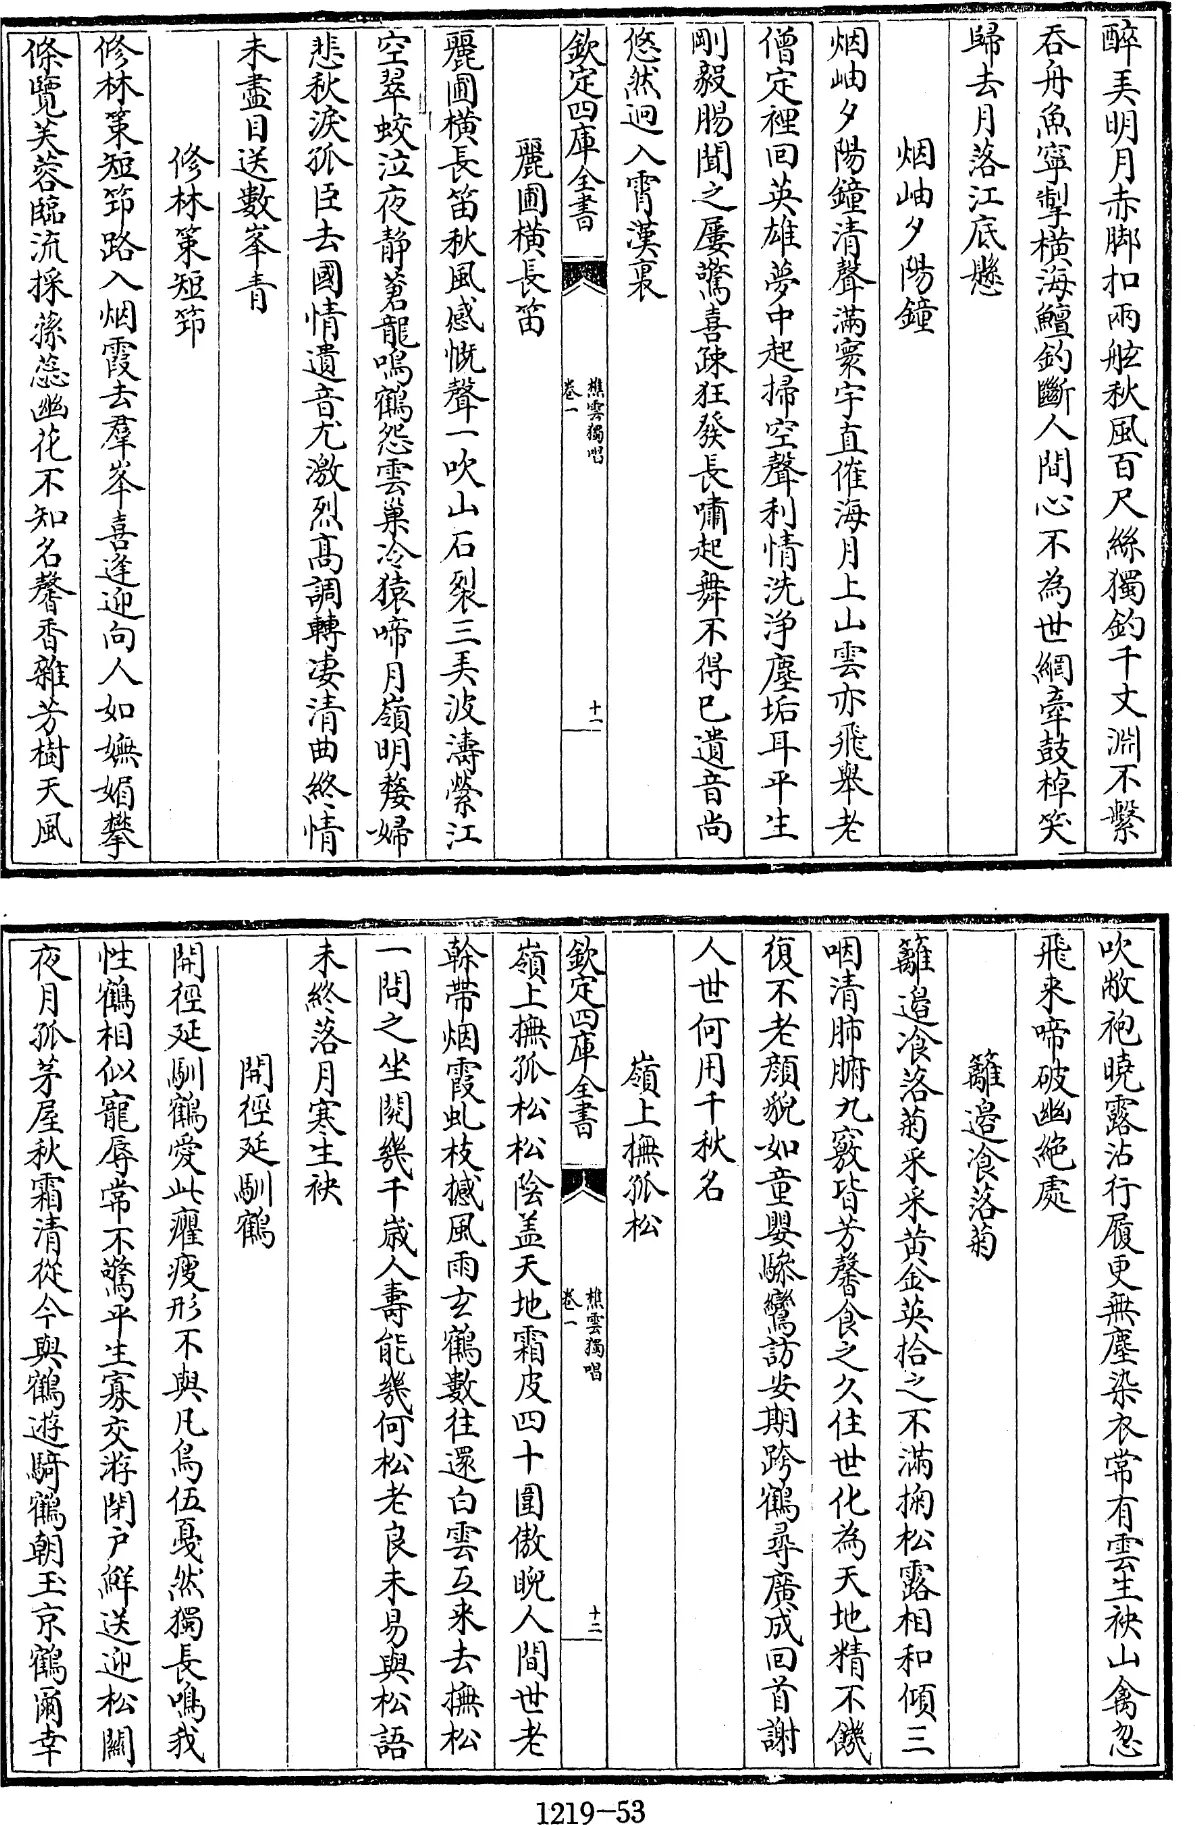 醉美明月赤脚扣兩舷秋風百尺絲獨釣千丈淵不繫
吞舟魚寧掣横海鱣釣斷人間心不為世網牽鼓棹笑
歸去月落江底懸
烟岫夕陽鐘
烟岫夕陽鐘清聲滿寰宇直催海月上山雲亦飛舉老
僧定裡回英雄夢中起掃空聲利情洗净塵垢耳平生
剛毅腸聞之屢驚喜疎狂發長嘯起舞不得已遺音尚
悠然迥入霄漢裏
欽定四庫全書
樵雲獨唱
卷一
十一
麗圃横長笛
麗圃横長笛秋風感慨聲一吹山石裂三弄波濤縈江
空翠蛟泣夜静蒼龍鳴鶴怨雲巢冷猿啼月嶺明嫠婦
悲秋淚孤臣去國情遺音尤激烈髙調轉凄清曲終情
未盡目送數峯青
修林策短筇
修林策短筇路入烟霞去羣峯喜逢迎向人如嫵媚攀
條覽芙蓉臨流採蓀蕊幽花不知名馨香雜芳樹天風
吹敝袍曉露沾行履更無塵染衣常有雲生袂山禽忽
飛来啼破幽絶處
籬邉飡落菊
籬邉飡落菊采采黄金英拾之不滿掬松露相和傾三
咽清肺腑九竅皆芳馨食之久住世化為天地精不饑
復不老顔貌如童嬰驂鸞訪安期跨鶴尋廣成回首謝
人世何用千秋名
嶺上撫孤松
欽定四庫全書
樵雲獨唱
卷一
十二
嶺上撫孤松松陰盖天地霜皮四十圍傲睨人間世老
榦帶烟霞虬枝撼風雨玄鶴數往還白雲互来去撫松
一問之坐閱幾千歳人壽能幾何松老良未易與松語
未終落月寒生袂
開徑延馴鶴
開徑延馴鶴愛此癯瘦形不與凡鳥伍戞然獨長鳴我
性鶴相似寵辱常不驚平生寡交游閉户鮮送迎松關
夜月孤茅屋秋霜清從今與鶴遊騎鶴朝玉京鶴爾幸
1219-53